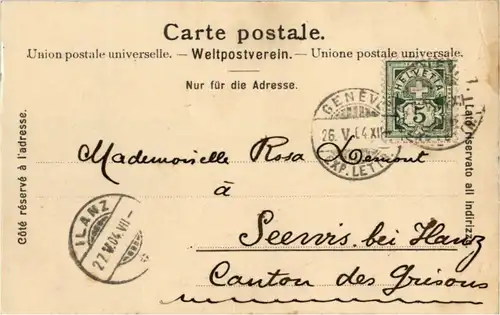 Carte postale.
Union postale universelle. — Weltpostverein. — Unione postale universale.
Nur für die Adresse.
HELVETIA
5
GENÈVE
26. V. 04. XII
EXP. LETT.
Mademoiselle Rosa Demont
à
Seewis bei Ilanz
Canton des Grisons
ILANZ
27. V. 04. VII-
Côté réservé à l'adresse.
Lato riservato all'indirizzo.